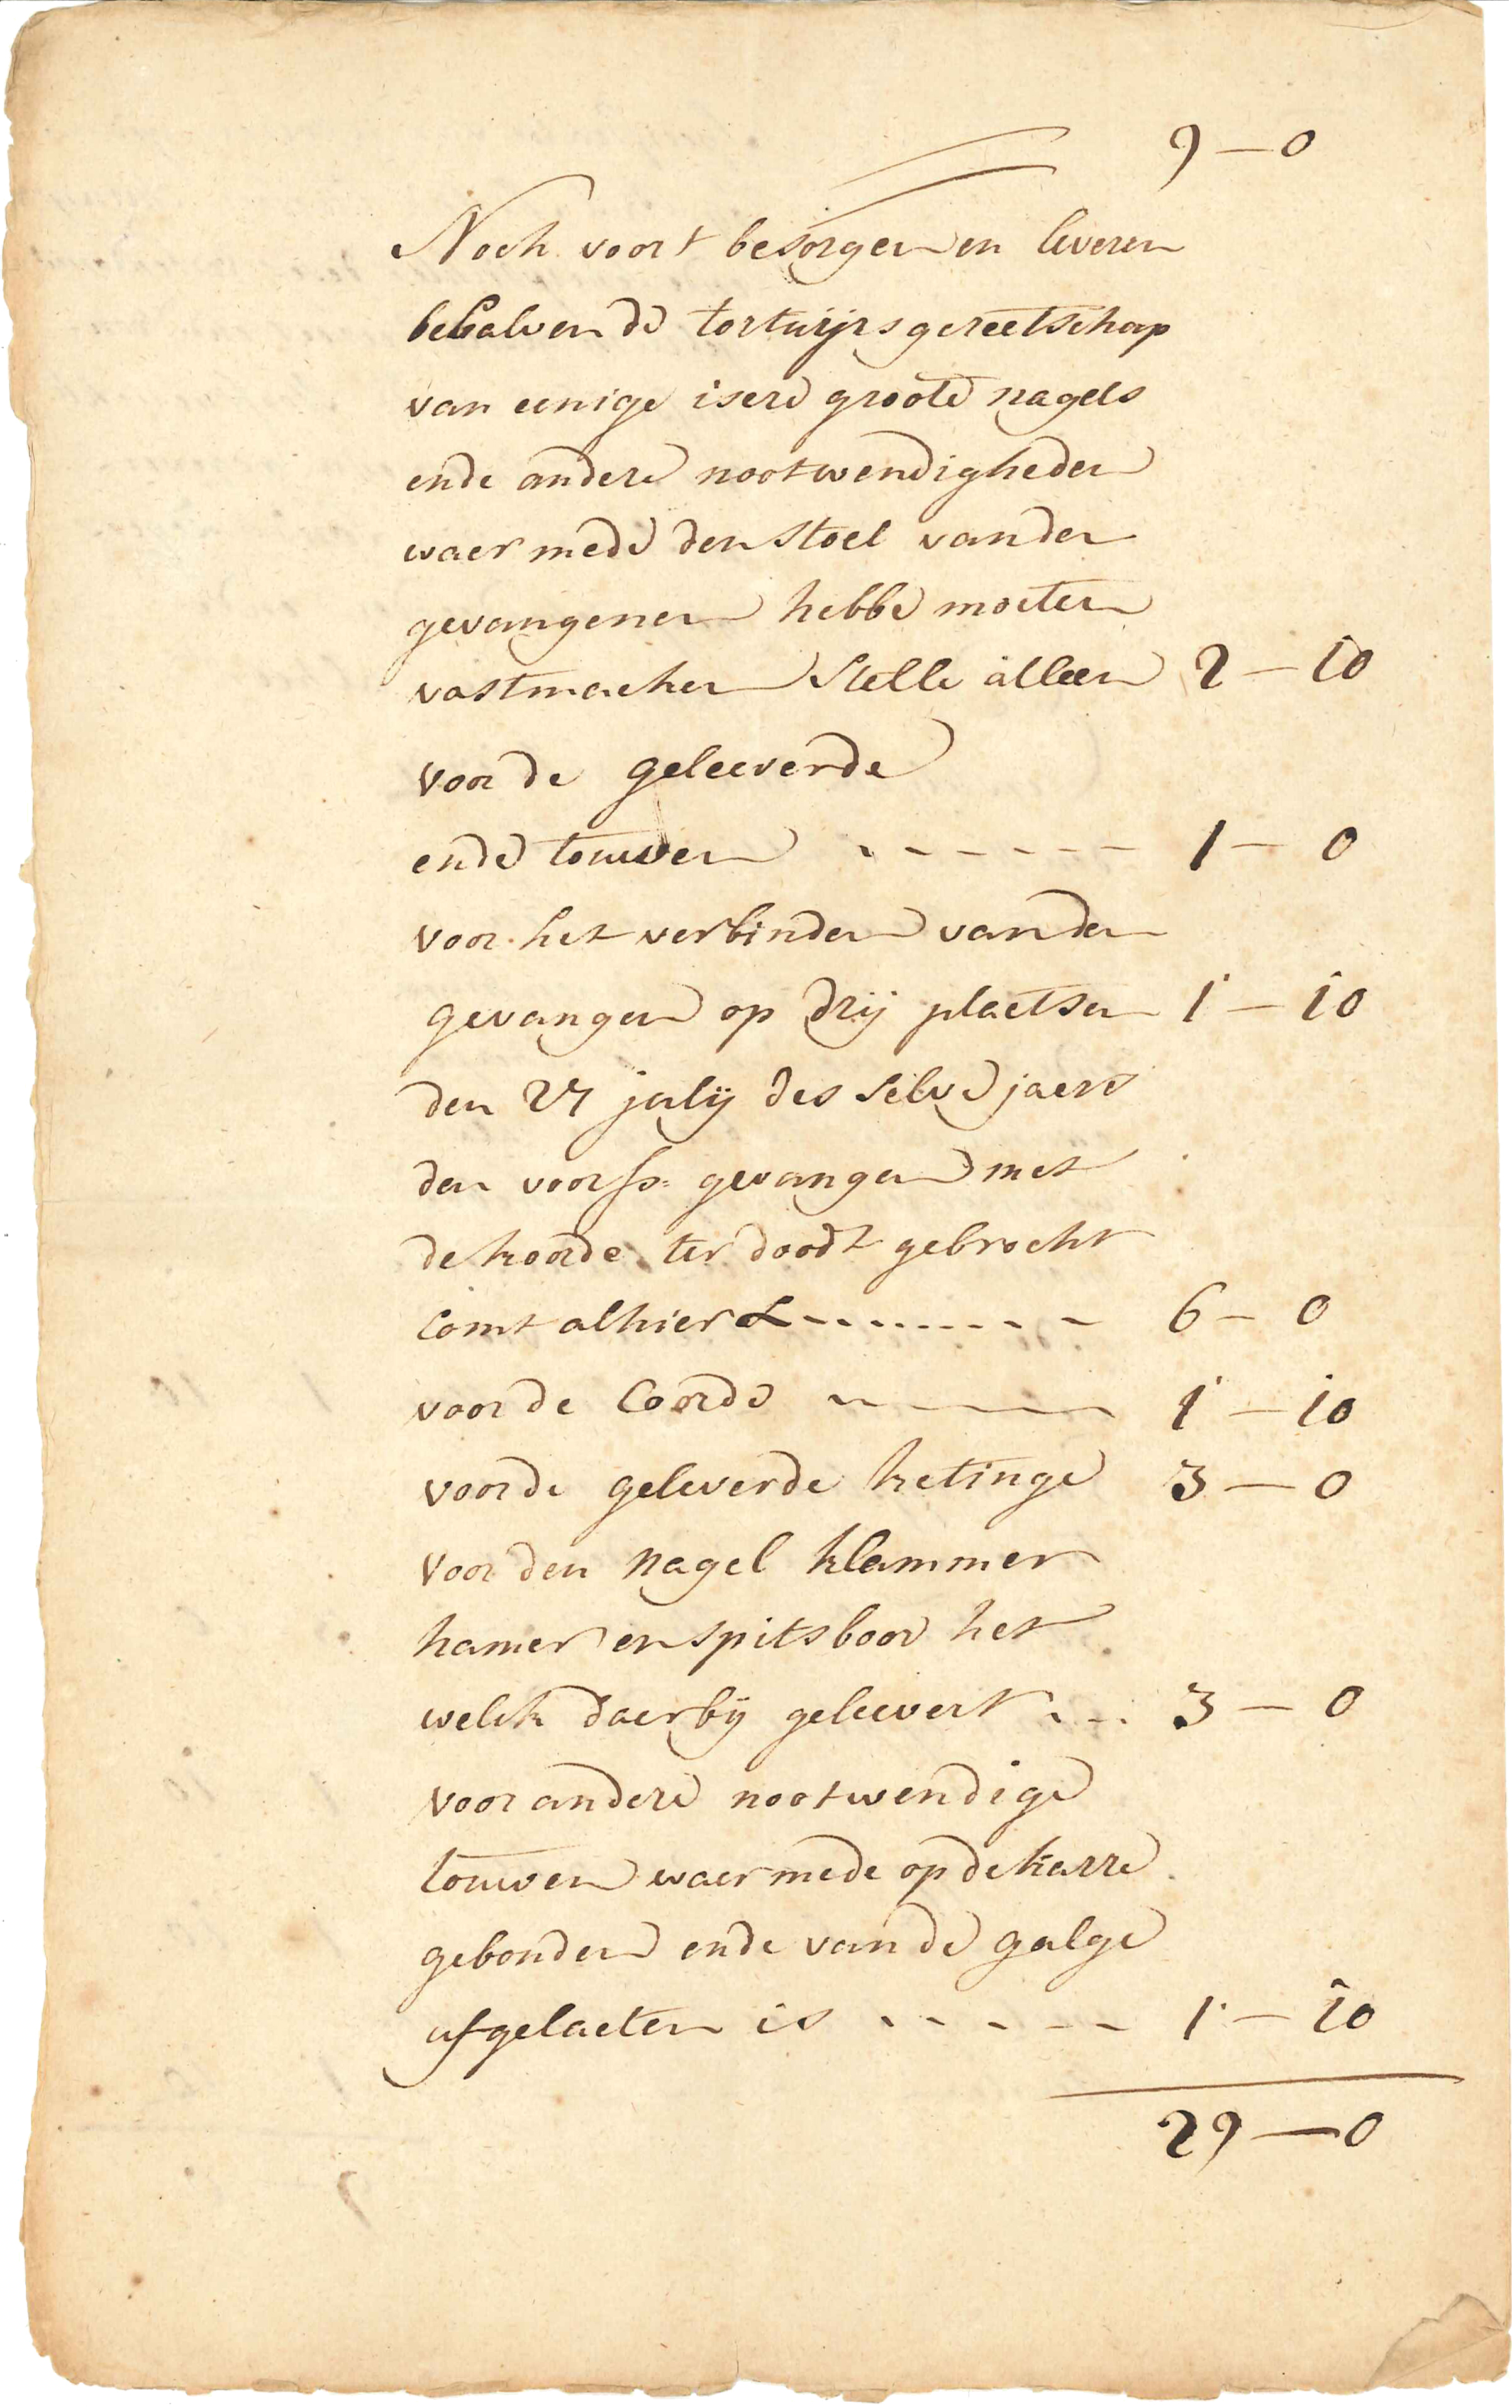 9 — 0
Noch voort besorgen en leveren
behalven de tortuijrs gereetschap
van eenige isere groote nagels
ende andere nootwendigheden
waer mede den stoel van den
gevangenen hebbe moeten
vastmacken stelle alleen 2 — 10
voor de geleeverde
ende touwen - - - - - - 1 — 0
voor het verbinden van den
gevangen op drij plaetsen 1 — 10
den 27 julij des selve jaers
den voors: gevangen met
de koorde ter doodt gebrocht
comt alhier - - - - - - 6 — 0
voor de Coorde - - - - 1 — 10
voor de geleverde ketinge 3 — 0
voor den nagel klammer
hamer en spitsboor het
welck daer bij geleevert - - - 3 — 0
voor andere nootwendige
touwen waer mede op de karre
gebonden ende van de galge
afgelaeten is - - - - - 1 — 10
29 — 0